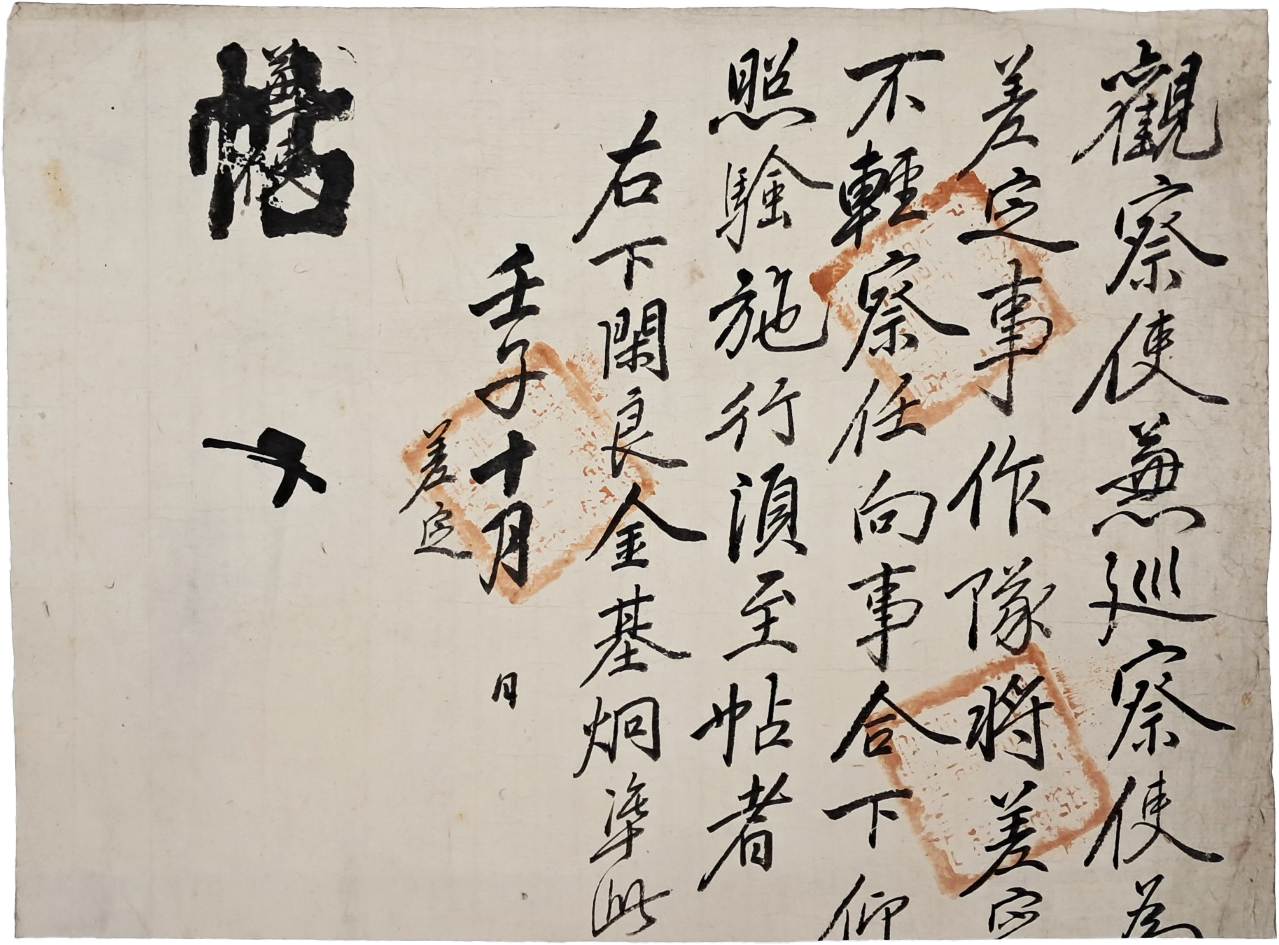 觀察使兼巡察使爲
差定事作隊將差定
不輕察任向事合下仰
照驗施行湏至帖者
右下閑良金基炯準此
壬子十月 日
差定
帖
兼使